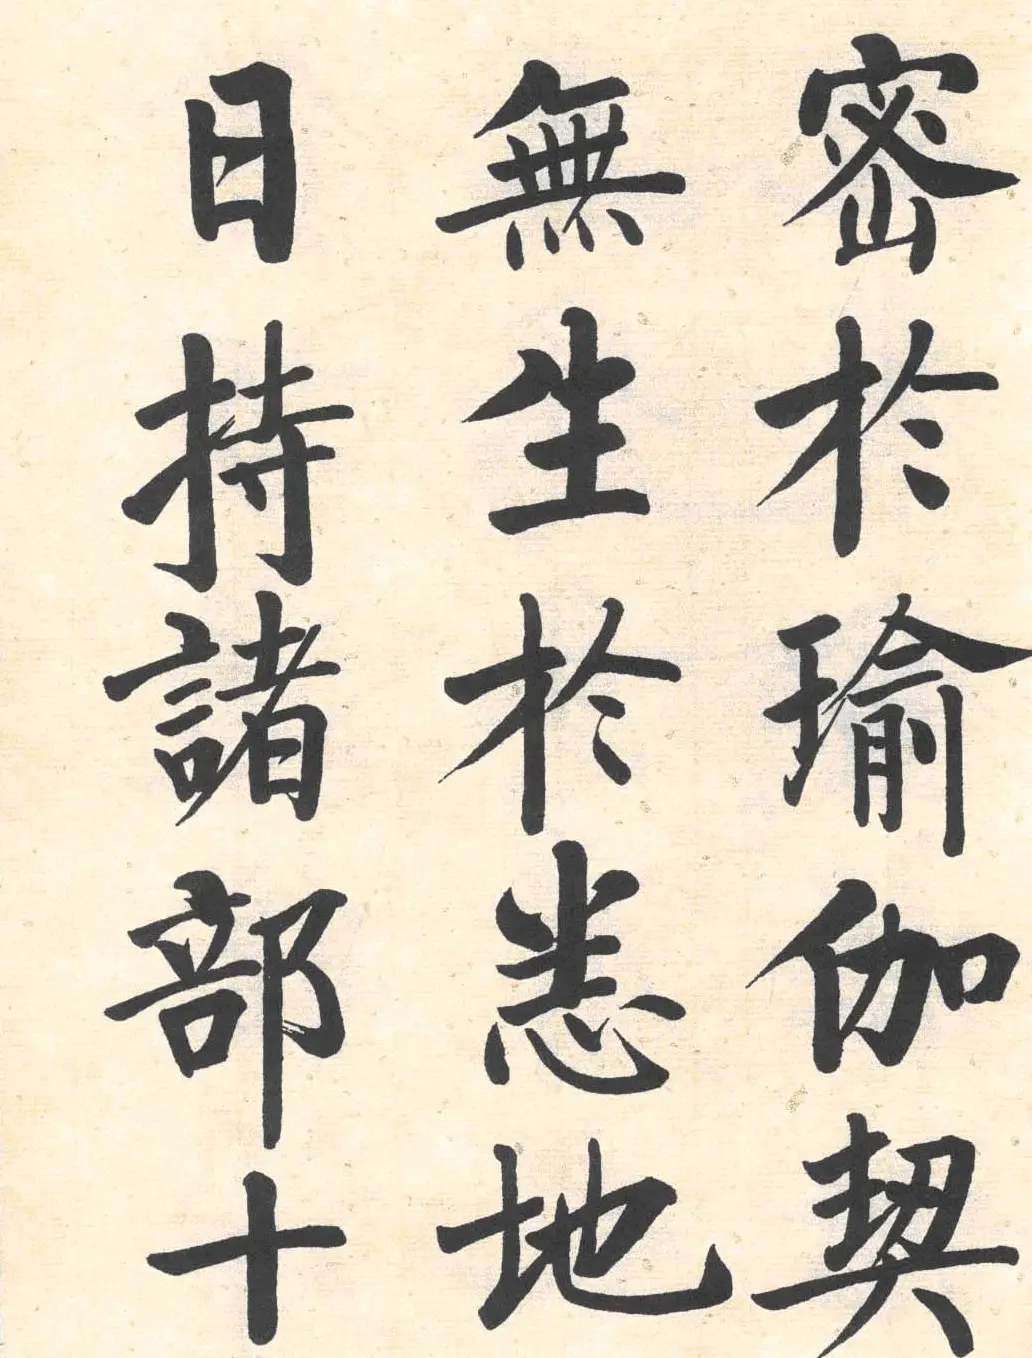 密於瑜伽契
無生於悉地
日持諸部十